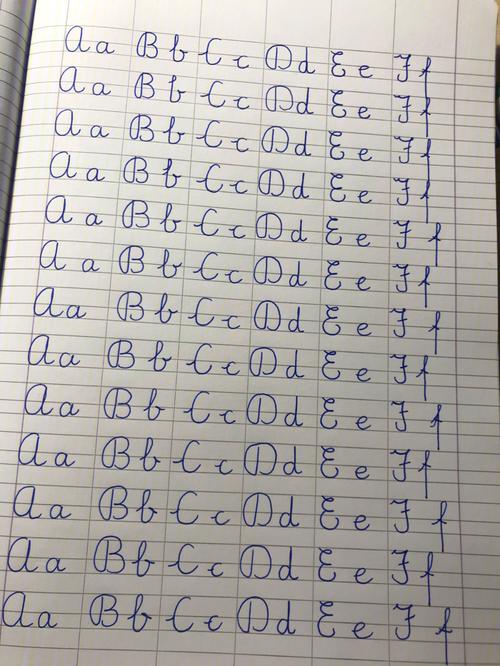 Aa Bb Cc Dd Ee Ff
Aa Bb Cc Dd Ee Ff
Aa Bb Cc Dd Ee Ff
Aa Bb Cc Dd Ee Ff
Aa Bb Cc Dd Ee Ff
Aa Bb Cc Dd Ee Ff
Aa Bb Cc Dd Ee Ff
Aa Bb Cc Dd Ee Ff
Aa Bb Cc Dd Ee Ff
Aa Bb Cc Dd Ee Ff
Aa Bb Cc Dd Ee Ff
Aa Bb Cc Dd Ee Ff
Aa Bb Cc Dd Ee Ff